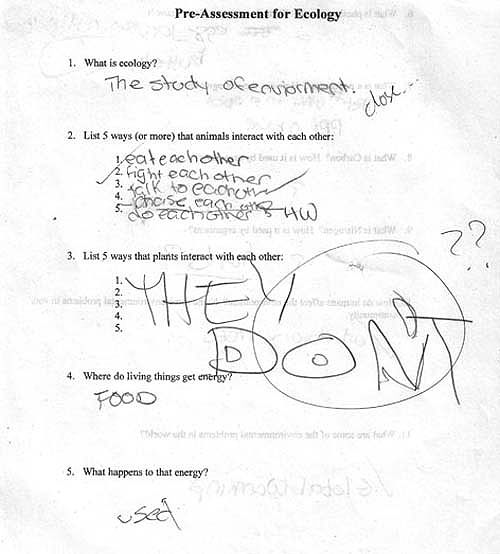 Pre-Assessment for Ecology
1. What is ecology?
The study of enviorment.
close...
2. List 5 ways (or more) that animals interact with each other:
1. eat each other
2. fight each other
3. talk to each other
4. each other
5. do each other's HW
3. List 5 ways that plants interact with each other:
??
1.
2.
3.
4.
5.
THEY
DON'T
4. Where do living things get energy?
FOOD
5. What happens to that energy?
used